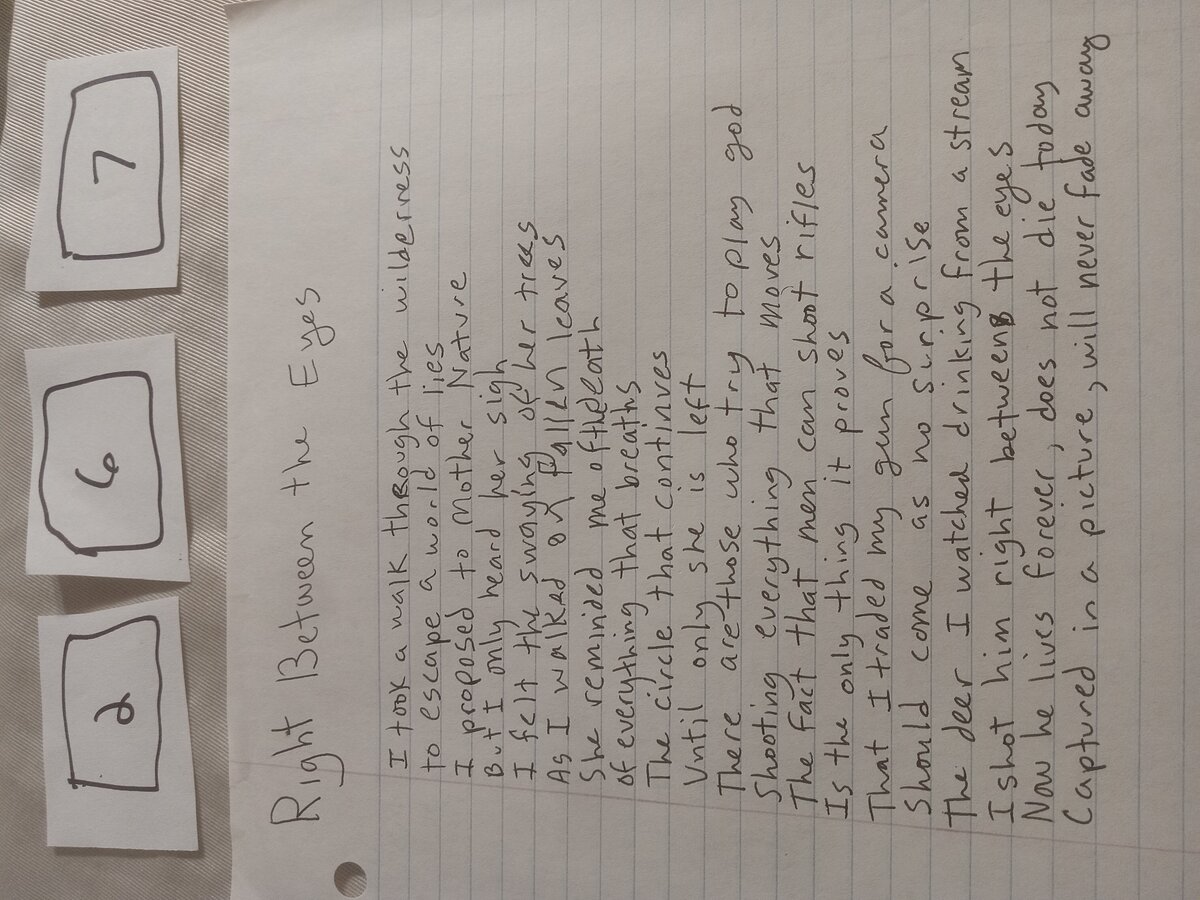 2 6 7
Right Between the Eyes
I took a walk through the wilderness
to escape a world of lies
I proposed to Mother Nature
But I only heard her sigh
I felt the swaying of her trees
As I walked on fallen leaves
She reminded me of the death
of everything that breaths
The circle that continues
Until only she is left
There are those who try to play god
Shooting everything that moves
The fact that men can shoot rifles
Is the only thing it proves
That I traded my gun for a camera
Should come as no surprise
The deer I watched drinking from a stream
I shot him right between the eyes
Now he lives forever, does not die today
Captured in a picture, will never fade away